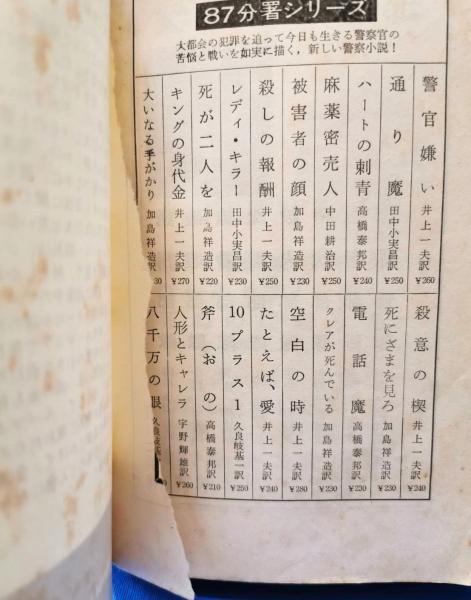 87分署シリーズ
大都会の犯罪を追って今日も生きる警察官の
苦悩と戦いを如実に描く,新しい警察小説!
警官嫌い 井上一夫訳 ¥260
通り魔 田中小実昌訳 ¥250
ハートの刺青 高橋泰邦訳 ¥240
麻薬密売人 中田耕治訳 ¥250
被害者の顔 加島祥造訳 ¥230
殺しの報酬 井上一夫訳 ¥250
レディ・キラー 田中小実昌訳 ¥230
死が二人を 加島祥造訳 ¥220
キングの身代金 井上一夫訳 ¥270
大いなる手がかり 加島祥造訳 30
殺意の楔 井上一夫訳 ¥240
死にざまを見ろ 加島祥造訳 ¥230
電話魔 高橋泰邦訳 ¥230
クレアが死んでいる 加島祥造訳 ¥230
空白の時 井上一夫訳 ¥280
たとえば、愛 井上一夫訳 ¥240
10プラス1 久良岐基一訳 ¥250
斧(おの) 高橋泰邦訳 ¥210
人形とキャレラ 宇野輝雄訳 ¥260
八千万の眼 久良岐基